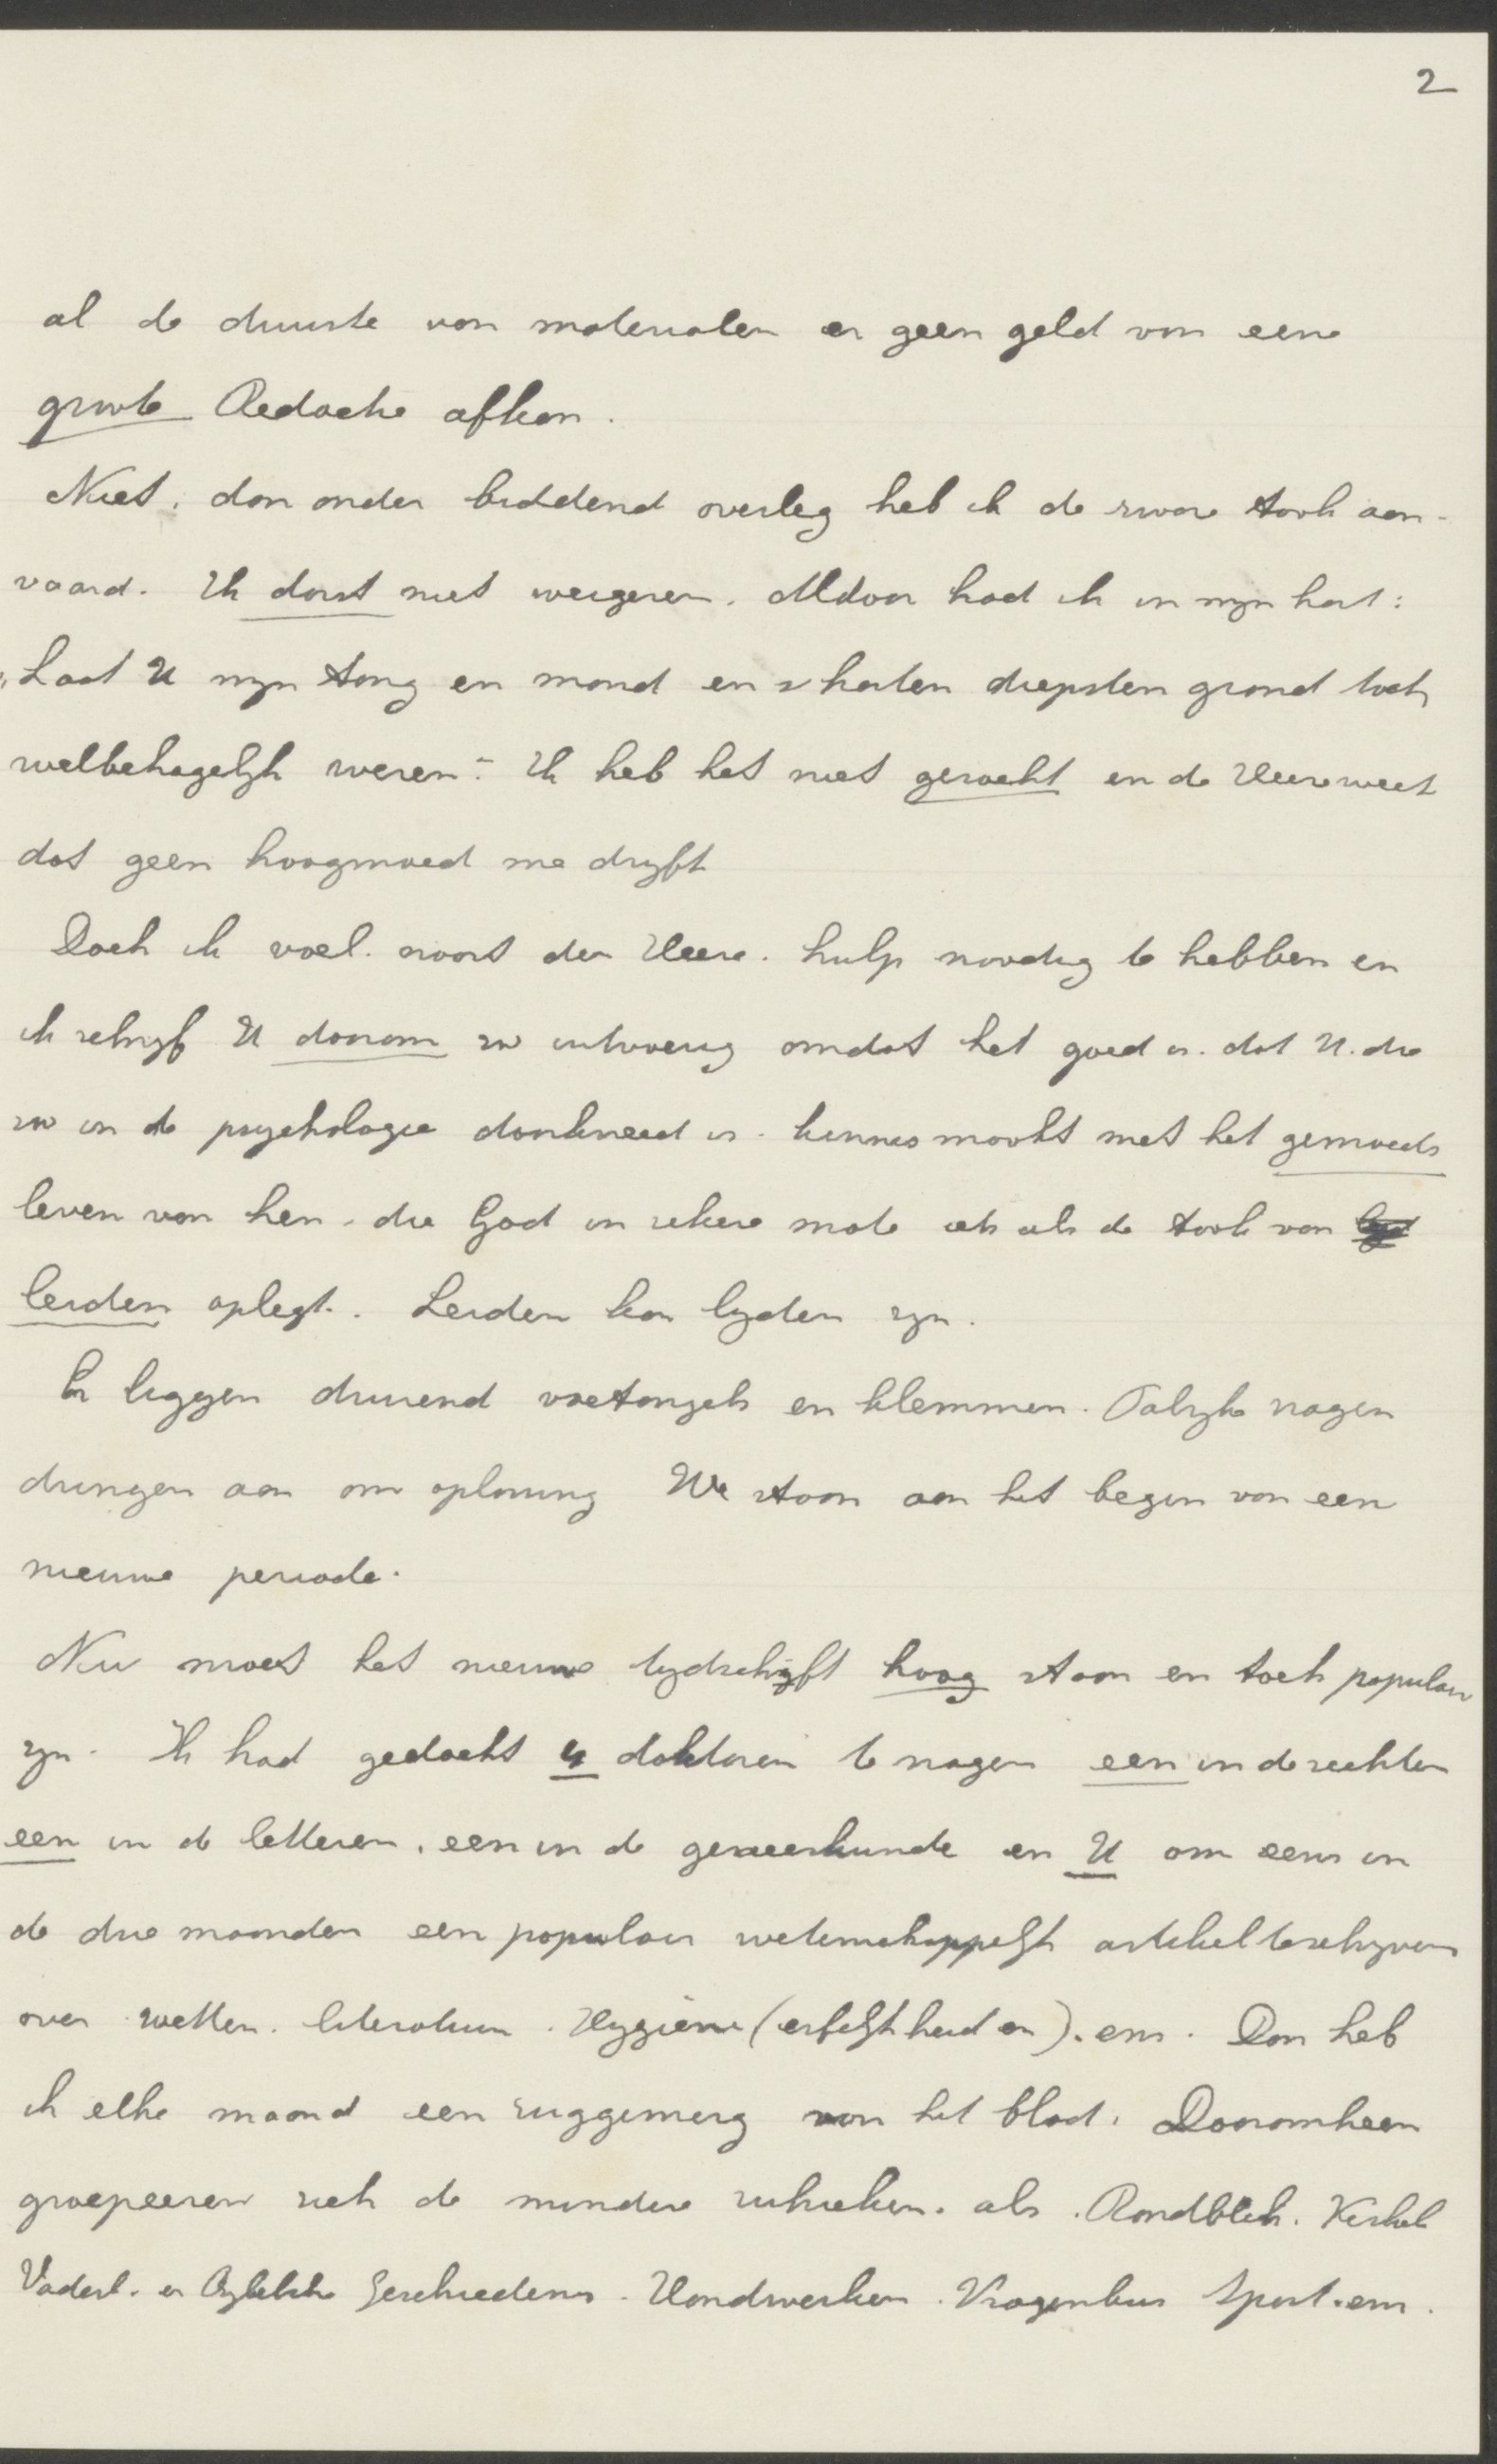 2
al de duurte van materialen er geen geld van eene
groote Redactie afkan.
Niet, dan onder biddend overleg heb ik de zware taak aan-
vaard. Ik dorst niet weigeren. Aldoor had ik in mijn hart:
"Laat U mijn tong en mond en 's harten diepsten grond toch
welbehagelijk wezen". Ik heb het niet gezocht en de Heere weet
dat geen hoogmoed me drijft
Doch ik voel. naast den Heere. hulp noodig te hebben en
ik schrijf U daarom zoo uitvoerig omdat het goed is. dat U. die
zoo in de psychologie doorkneed is. kennis maakt met het gemoeds
leven van hen, die God in zekere mate iets als de taak van
leiden oplegt. Leiden kan lijden zijn.
Er liggen duizend voetangels en klemmen. Talrijke vragen
dringen aan om oplossing We staan aan het begin van een
nieuwe periode.
Nu moet het nieuwe tijdschrift hoog staan en toch populair
zijn. Ik had gedacht 4 doktoren te vragen een in de rechten
een in de letteren, een in de geneeskunde en U om eens in
de drie maanden een populair wetenschappelijk artikel te schrijven
over wetten. literatuur. Hygiène (erfelijkheid en). enz. Dan heb
ik elke maand een ruggemerg van het blad. Daaromheen
groepeeren zich de mindere rubrieken. als. Rondblik. Kerkel
Vaderl. en Bijbelsche Geschiedenis. Handwerken. Vragenbus Sport. enz.